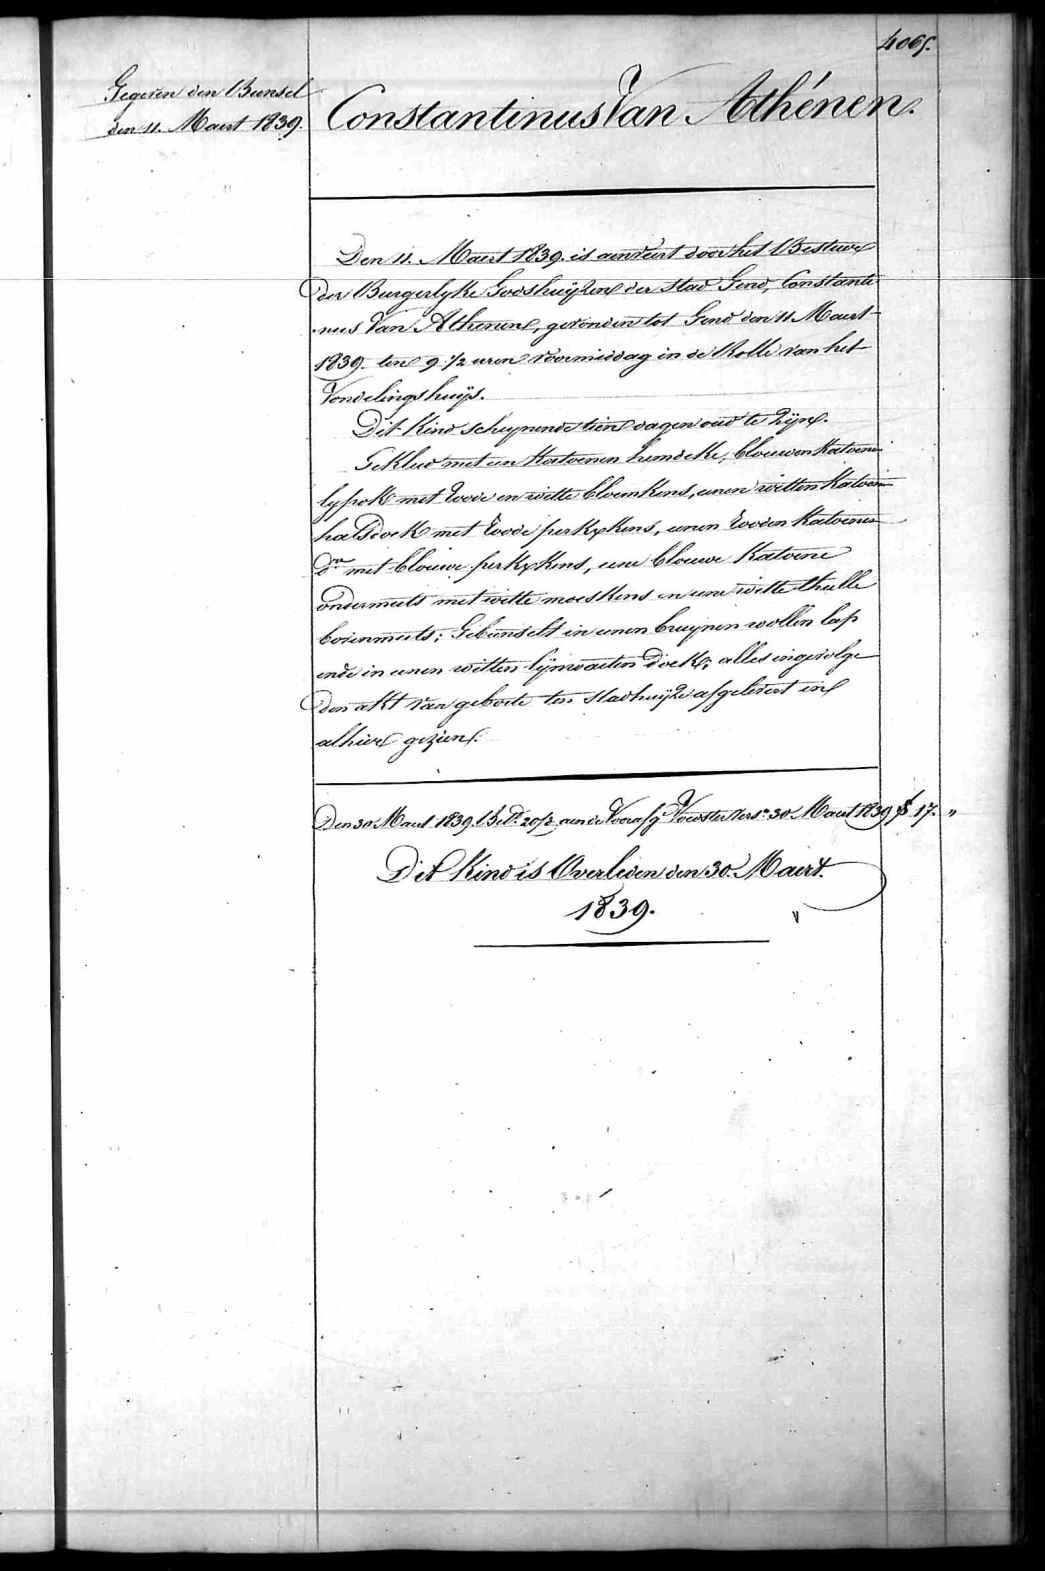 4065.
Gegeven den Bunsel
den 11. Maert 1839.
Constantinus Van Athénen.
Den 11. Maert 1839. is aenveirt door het Bestuer
der Burgerlyke Godshuyzen der stad Gend, Constanti-
nus Van Athenen, gevonden tot Gend den 11 Maert
1839. ten 9 1/2 uren voormiddag in de Rolle van het
Vondelingshuys.
Dit Kind scheynende tien dagen oud te zyn.
Gekleed met een Katoenen hemdeke, blouwen Katoenen
lyfrok met roode en witte bloemkens, eenen witten Katoenen
halsdoek met roode perkxkens, eenen rooden Katoenen
do. met blouwe perkxkens, eene blouwe Katoene
ondermuts met witte moeskens en eene witte thulle
bovenmuts; Gebunselt in eenen bruynen wollen lap
ende in eenen witten lynwaeten doek; alles ingevolge
den akt van geboorte ten stadhuyze afgelevert en
alhier gezien.
Den 30 Maert 1839. Bet. aen de Voedster 30 Maert 1839 17. "
Dit Kind is Overleden den 30. Maert.
1839.